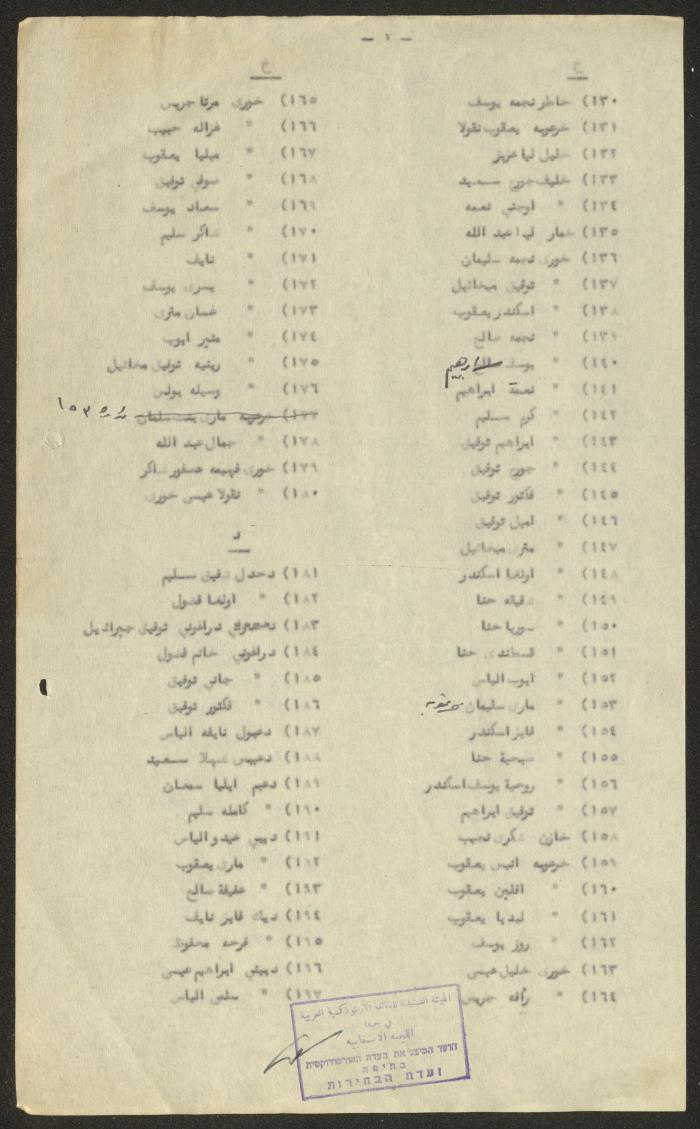 - ٢ -
خ
١٣٠) خاطر نجمه يوسف
١٣١) خرعوبه يعقوب نقولا
١٣٢) خليل ليا عزيز
١٣٣) خليف جورج سعيد
١٣٤) " اوجني نعمه
١٣٥) خمار ليا عبد الله
١٣٦) خوري نجمه سليمان
١٣٧) " توفيق ميخائيل
١٣٨) " اسكندر يعقوب
١٣٩) " نجمه سالم
١٤٠) " يوسف ابراهيم
١٤١) " نعمة ابراهيم
١٤٢) " كرم سليم
١٤٣) " ابراهيم توفيق
١٤٤) " جورج توفيق
١٤٥) " فكتور توفيق
١٤٦) " اميل توفيق
١٤٧) " متري ميخائيل
١٤٨) " اولغا اسكندر
١٤٩) " شفيقه حنا
١٥٠) " سوريا حنا
١٥١) " قسطندي حنا
١٥٢) " ايوب الياس
١٥٣) " ماري سليمان
١٥٤) " فايز اسكندر
١٥٥) " صبحية حنا
١٥٦) " روحية يوسف اسكندر
١٥٧) " توفيق ابراهيم
١٥٨) خازن شكري نجيب
١٥٩) خرعوبه انيس يعقوب
١٦٠) " افلين يعقوب
١٦١) " ليديا يعقوب
١٦٢) " روز يوسف
١٦٣) خوري خليل عيسى
١٦٤) " رأفه جريس
خ
١٦٥) خوري مرتا جريس
١٦٦) " غزاله حبيب
١٦٧) " ميليا يعقوب
١٦٨) " سوفي توفيق
١٦٩) " سعاد يوسف
١٧٠) " شاكر سليم
١٧١) " نايف
١٧٢) " يسرى يوسف
١٧٣) " غسان متري
١٧٤) " منير ايوب
١٧٥) " رينيه توفيق مخائيل
١٧٦) " وسيله بولس
١٧٧) خرعوبه ماري بنت سلمان ١٥٣
١٧٨) " جمال عبد الله
١٧٩) خوري فهيمه عصفور شاكر
١٨٠) " نقولا عيسى خوري
د
١٨١) دحدل شفيق سليم
١٨٢) " اولغا فضول
١٨٣) دراغوني توفيق جبرائيل
١٨٤) دراغوني حاتم فضول
١٨٥) " جاني توفيق
١٨٦) " فكتور توفيق
١٨٧) دعبول نايفه الياس
١٨٨) دعيبس شهلا سعيد
١٨٩) دعيم ايليا سمعان
١٩٠) " كامله سليم
١٩١) ديبي عبدو الياس
١٩٢) " ماري يعقوب
١٩٣) " عفيفة سالم
١٩٤) دياك فايز نايف
١٩٥) " فرحه محفوظ
١٩٦) ديبني ابراهيم عيسى
١٩٧) " سلمى الياس
الارثوذكسية العربية
في حيفا
اللجنة الانتخابية
הועד המיצג את העדה האורטודוקסית
בחיפה
ועדת הבחירות